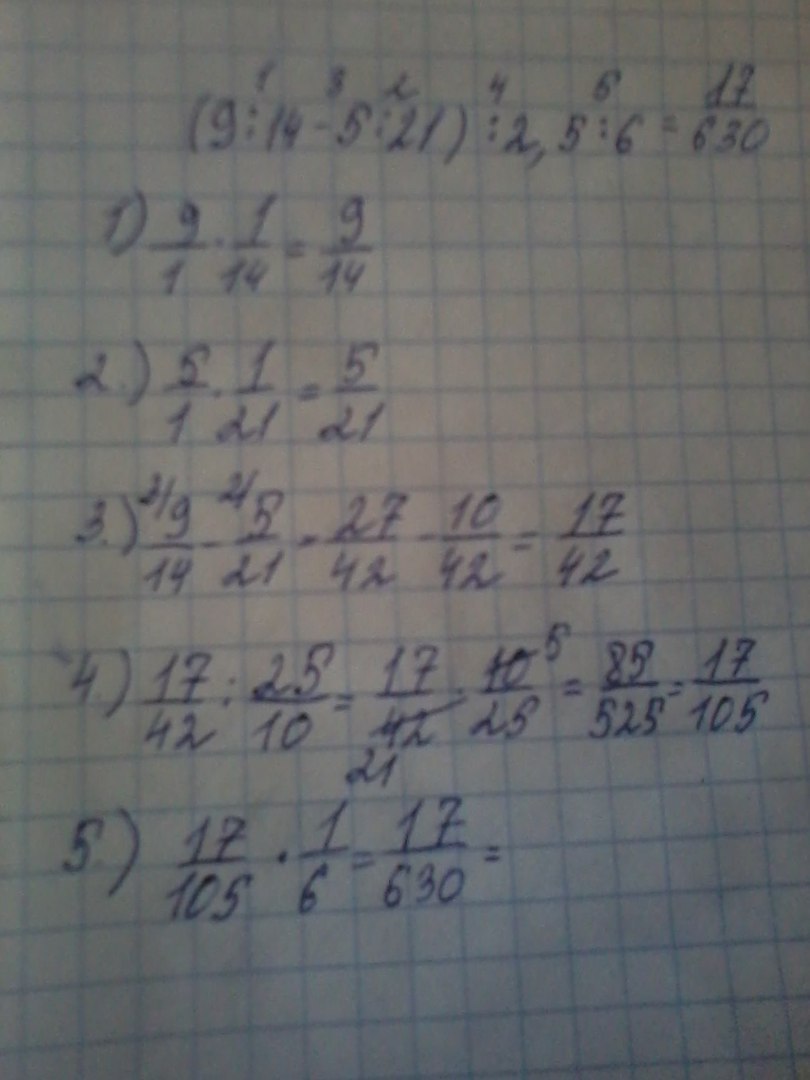 1 3 2 4 5
(9:14-5:21):2,5:6=17/630
1) 9/1·1/14=9/14
2.) 5/1·1/21=5/21
3.) 9/14-5/21=27/42-10/42=17/42
4.) 17/42:25/10=17/42·10/25=85/525=17/105
5
21
5.) 17/105·1/6=17/630=